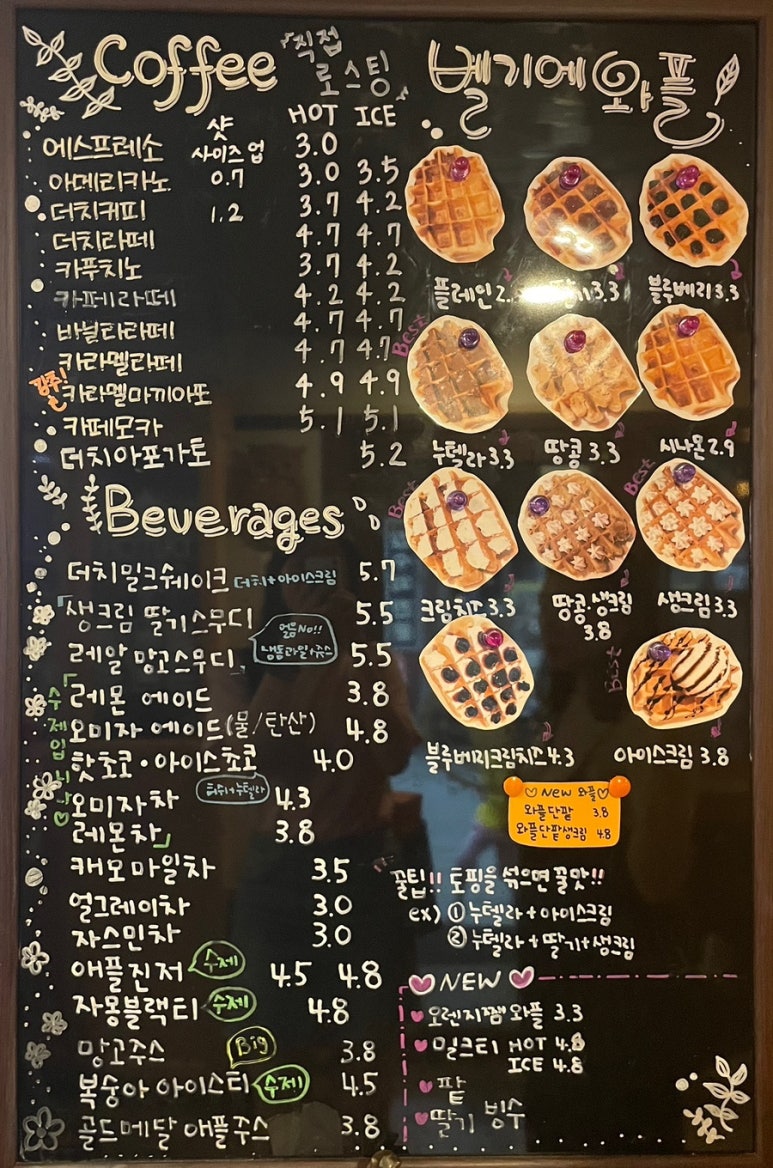 Coffee 「직접
로스팅」
HOT ICE
샷
사이즈업
에스프레소 3.0
아메리카노 0.7 3.0 3.5
더치커피 1.2 3.7 4.2
더치라떼 4.7 4.7
카푸치노 3.7 4.2
카페라떼 4.2 4.2
바닐라라떼 4.7 4.7
카라멜라떼 4.7 4.7
강추! 카라멜마끼아또 4.9 4.9
카페모카 5.1 5.1
더치아포가토 5.2
Beverages
더치밀크쉐이크 더치+아이스크림 5.7
「생크림 딸기스무디 5.5
얼음No!!
냉동과일+쥬스
레알 망고스무디」 5.5
수제입니다♡
「레몬 에이드 3.8
오미자 에이드(물/탄산) 4.8
핫쵸코·아이스쵸코 4.0
허쉬+누텔라
오미자차 4.3
레몬차」 3.8
캐모마일차 3.5
얼그레이차 3.0
자스민차 3.0
애플진저 수제 4.5 4.8
자몽블랙티 수제 4.8
망고주스 Big 3.8
복숭아 아이스티 수제 4.5
골드메달 애플주스 3.8
벨기에 와플
플레인 2. 3.3 블루베리 3.3
Best
누텔라 3.3 땅콩 3.3 시나몬 2.9
Best Best
크림치즈 3.3 땅콩생크림 3.8 생크림 3.3
Best
블루베리크림치즈 4.3 아이스크림 3.8
♡ NEW 와플♡
와플단팥 3.8
와플단팥생크림 4.8
꿀팁!! 토핑을 섞으면 꿀맛!!
ex) ① 누텔라+아이스크림
② 누텔라+딸기+생크림
♥ NEW ♥
♥ 오렌지쨈 와플 3.3
♥ 밀크티 HOT 4.8
ICE 4.8
♥ 팥
♥ 딸기 빙수